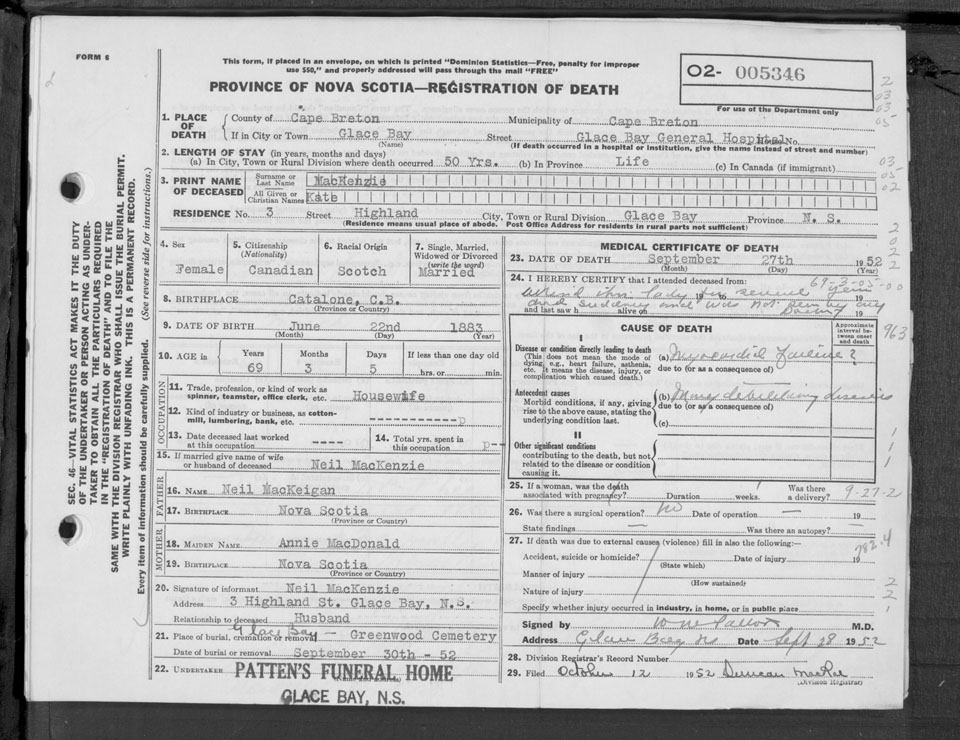 FORM 6
This form, if placed in an envelope, on which is printed "Dominion Statistics—Free, penalty for improper
use $50," and properly addressed will pass through the mail "FREE"
PROVINCE OF NOVA SCOTIA—REGISTRATION OF DEATH
O2- 005346
For use of the Department only
SEC. 46—VITAL STATISTICS ACT MAKES IT THE DUTY
OF THE UNDERTAKER OR PERSON ACTING AS UNDER-
TAKER TO OBTAIN ALL THE PARTICULARS REQUIRED
IN THE "REGISTRATION OF DEATH" AND TO FILE THE
SAME WITH THE DIVISION REGISTRAR WHO SHALL ISSUE THE BURIAL PERMIT.
WRITE PLAINLY WITH UNFADING INK. THIS IS A PERMANENT RECORD.
Every item of information should be carefully supplied. (See reverse side for instructions.)
1. PLACE OF DEATH County of Cape Breton Municipality of Cape Breton
If in City or Town Glace Bay Street Glace Bay General Hospital No.
(Name) (If death occurred in a hospital or institution, give the name instead of street and number)
2. LENGTH OF STAY (in years, months and days)
(a) In City, Town or Rural Division where death occurred 50 Yrs. (b) In Province Life (c) In Canada (if immigrant)
3. PRINT NAME OF DECEASED Surname or Last Name MacKenzie
All Given or Christian Names Kate
RESIDENCE No. 3 Street Highland City, Town or Rural Division Glace Bay Province N. S.
(Residence means usual place of abode. Post Office Address for residents in rural parts not sufficient)
4. Sex Female
5. Citizenship (Nationality) Canadian
6. Racial Origin Scotch
7. Single, Married, Widowed or Divorced (write the word) Married
8. BIRTHPLACE Catalone, C.B.
(Province or Country)
9. DATE OF BIRTH June 22nd 1883
(Month) (Day) (Year)
10. AGE in Years Months Days If less than one day old
69 3 5 hrs. or min.
OCCUPATION
11. Trade, profession, or kind of work as
spinner, teamster, office clerk, etc. Housewife
12. Kind of industry or business, as cotton-
mill, lumbering, bank, etc. ------- p
13. Date deceased last worked
at this occupation ----
14. Total yrs. spent in
this occupation p--
15. If married give name of wife
or husband of deceased Neil MacKenzie
FATHER
16. NAME Neil MacKeigan
17. BIRTHPLACE Nova Scotia
(Province or Country)
MOTHER
18. MAIDEN NAME Annie MacDonald
19. BIRTHPLACE Nova Scotia
(Province or Country)
20. Signature of informant Neil MacKenzie
Address 3 Highland St. Glace Bay, N.S.
Relationship to deceased Husband
21. Place of burial, cremation or removal Glace Bay — Greenwood Cemetery
Date of burial or removal September 30th - 52
22. UNDERTAKER PATTEN'S FUNERAL HOME
GLACE BAY, N.S.
MEDICAL CERTIFICATE OF DEATH
23. DATE OF DEATH September 27th 1952
(Month) (Day) (Year)
24. I HEREBY CERTIFY that I attended deceased from: 69-3-05-00
19 to years 19
and last saw h alive on 19
CAUSE OF DEATH
Approximate interval between onset and death
963
I
Disease or condition directly leading to death
(This does not mean the mode of
dying, e.g., heart failure, asthenia,
etc. It means the disease, injury, or
complication which caused death.)
(a) Myocardial Failure?
due to (or as a consequence of)
Antecedent causes
Morbid conditions, if any, giving
rise to the above cause, stating the
underlying condition last.
(b) debilitating diseases
due to (or as a consequence of)
(c)
II
Other significant conditions
contributing to the death, but not
related to the disease or condition
causing it.
25. If a woman, was the death
associated with pregnancy? Duration weeks. Was there a delivery? 9-27-2
26. Was there a surgical operation? no Date of operation — 19
State findings — Was there an autopsy? —
27. If death was due to external causes (violence) fill in also the following:—
782.4
Accident, suicide or homicide? Date of injury 19
(State which)
Manner of injury
(How sustained)
Nature of injury
Specify whether injury occurred in industry, in home, or in public place
Signed by M.D.
Address Glace Bay NS Date Sept 28 1952
28. Division Registrar's Record Number
29. Filed October 12 1952 Duncan MacRae
(Division Registrar)